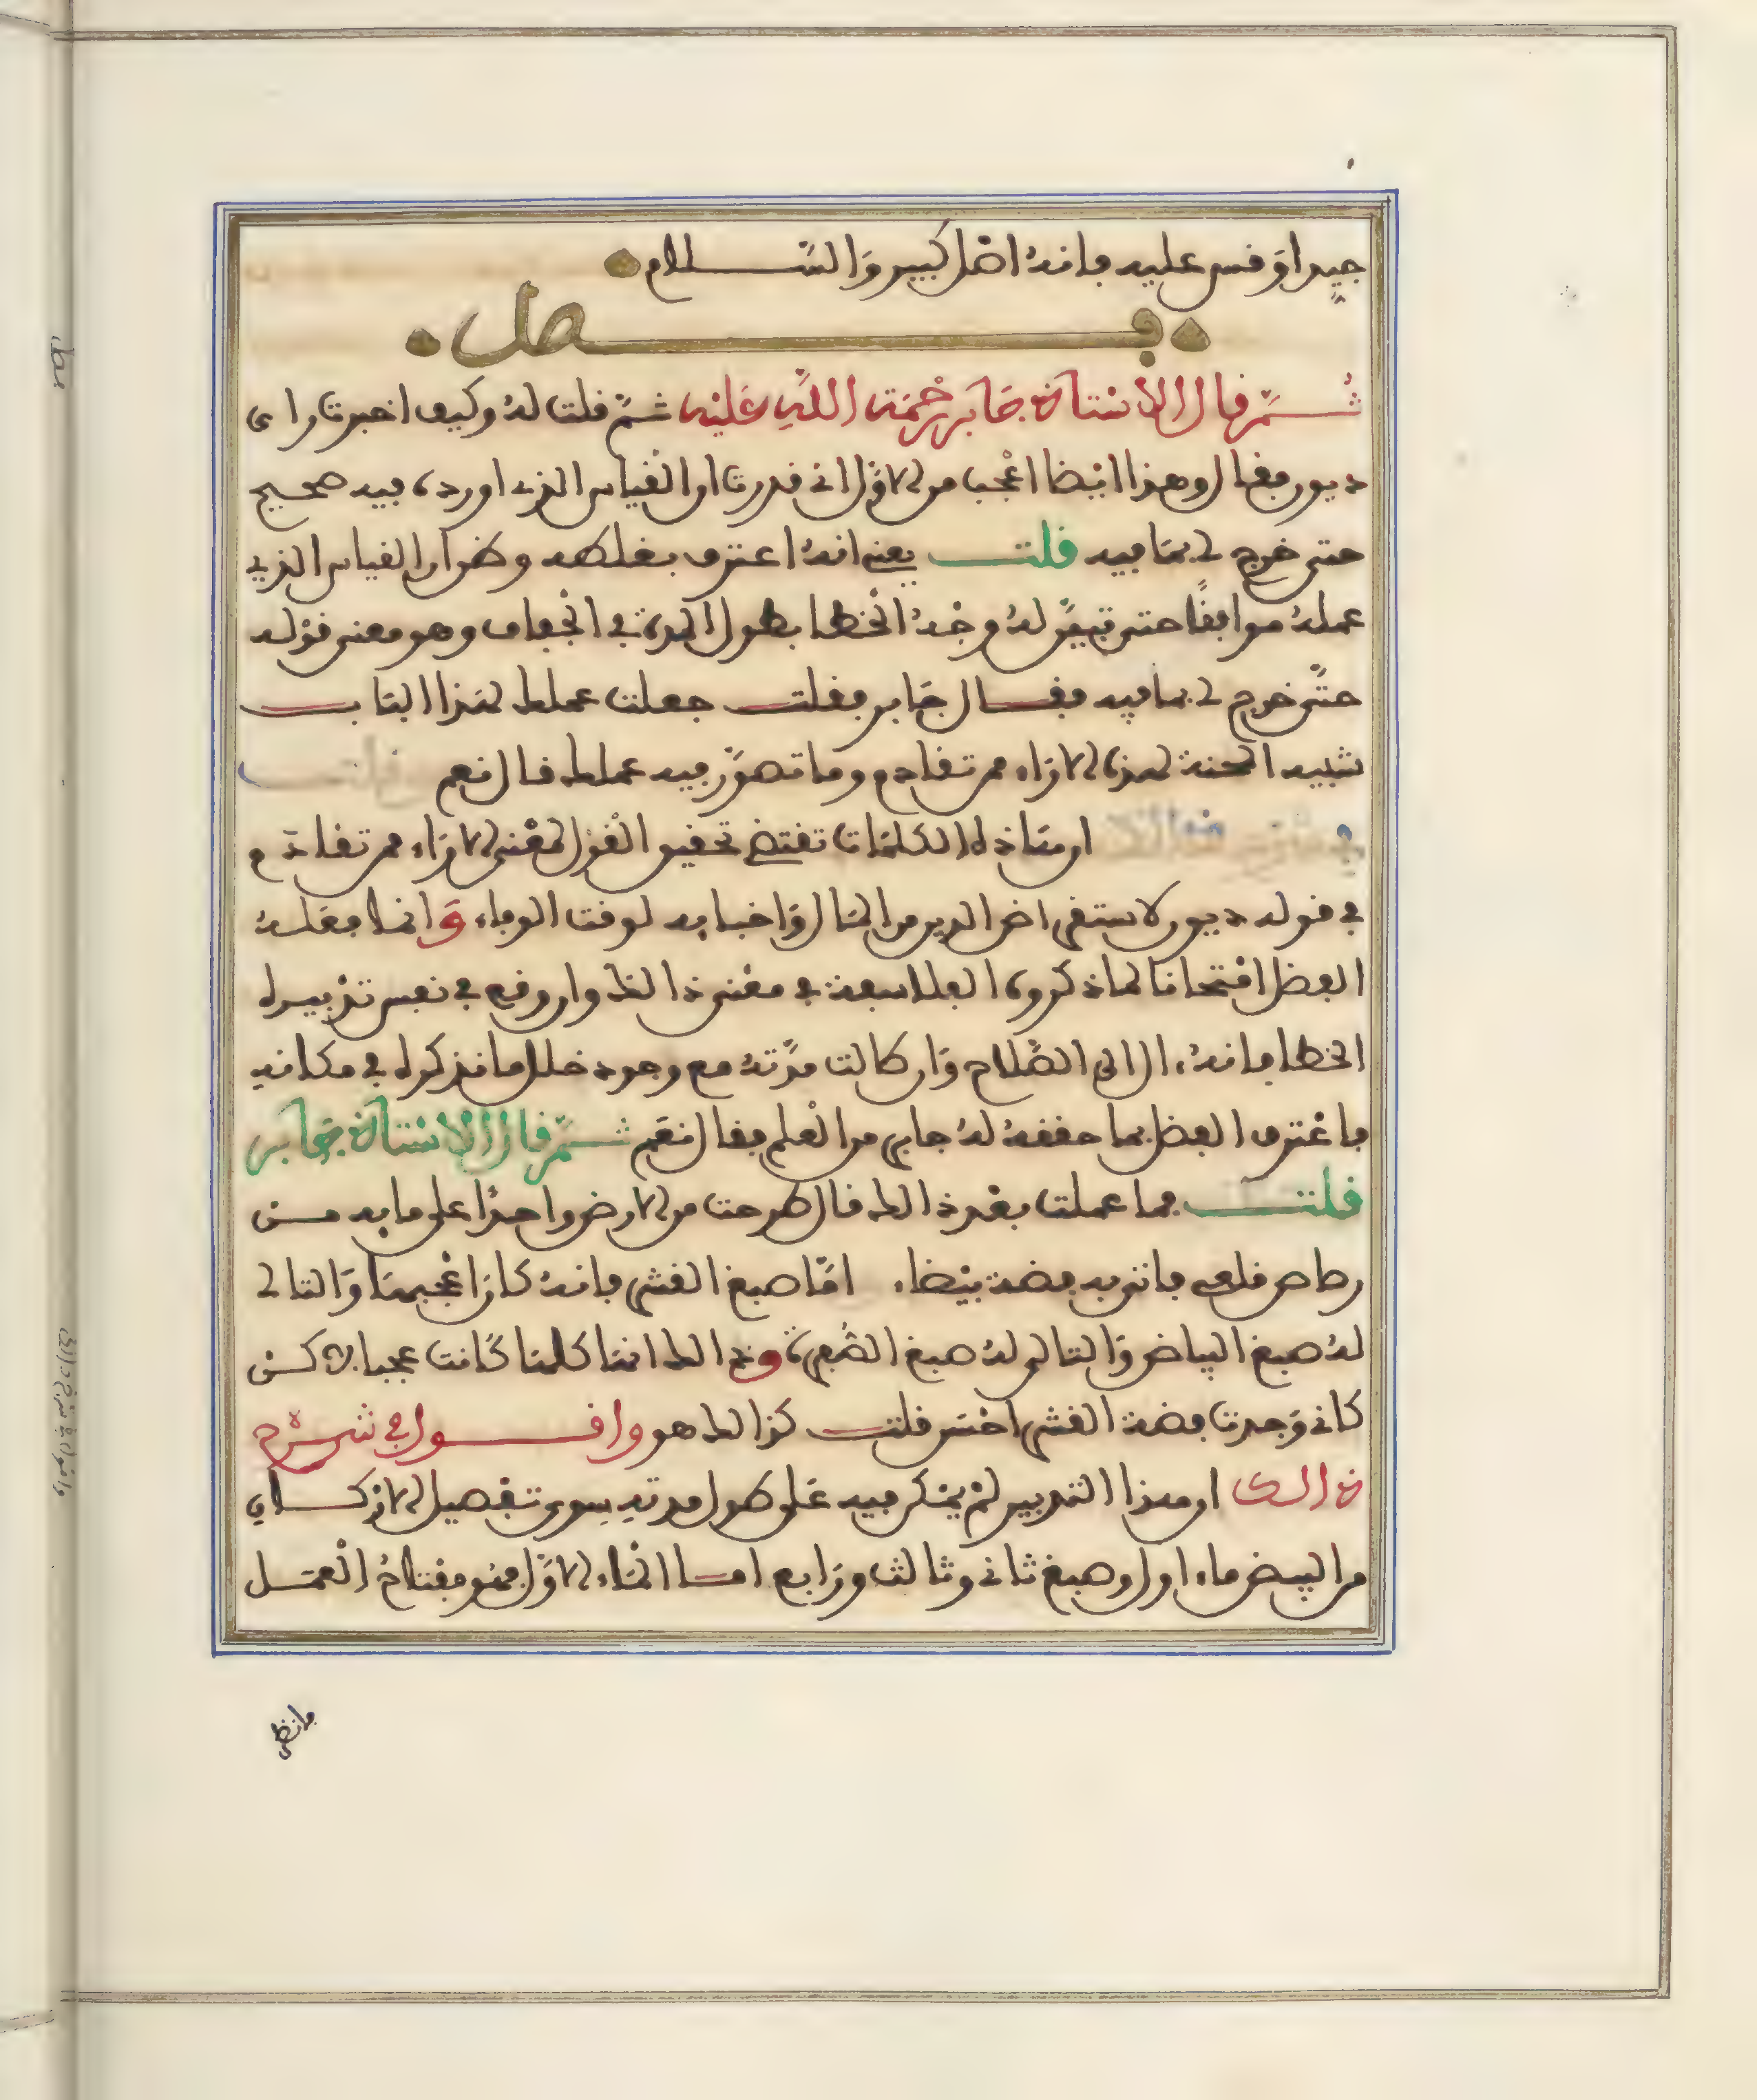 جيدا وقس عليه فانه اصل كبير والسلام
فصل
ثم قال الاستاذ جابر رحمة الله عليه ثم قلت له وكيف اخبرت راى
ديون فقال وهذا ايضا اعجب من الاول انى قدرت ان القياس الذى اورده فيه صحيح
حتى خرج لى بما فيه قلت يعنى انه اعترف بغلطه وظن ان القياس الذى
عمله موافقا حتى تبين له وجه الخطا بطول المدة فى الجفاف وهو معنى قوله
حتى خرج لى بما فيه فقال جابر فقلت جعلت عملك لهذا الباب
شبيه المحنة لهذه الاراء ممن تقادم وما تصور فيه عملك قال نعم قلت
ان هذه الكلمات تقتضى تحقيق القول لمعنى الاراء ممن تقادم
فى قوله ديون لاستقى اخر الدين من المال واخبا به لوقت الوفاء وانما فعله
الفضل امتحانا لما ذكروه الفلاسفة فى معنى ذالك وان وقع فى نفس تدبيره
الخطا فانه ال الى الصلاح وان طالت مدته مع وجود خلل ما نذكره فى مكانه
فاعترف الفضل بما حققه له جابر من العلم فقال نعم ثم قال الاستاذ جابر
قلت فما عملت بعد ذالك قال طرحت من الارض واحدا على مايه من
رصاص قلعى فاتى به فضة بيضاء اما صبغ القشر فانه كان اعجبها والتالى
له صبغ البياض والتالى له صبغ الصفرة وذالك انها كلها كانت عجبا لاكن
كانى وجدت فضة القشر احسن قلت كذالك هو واقول فى شرح
ذالك ان هذا التدبير لم يمكن فيه على طول مدته سوى تفصيل الاركان
من البيض ماء اول وصبغ ثانى وثالث ورابع اما الماء الاول فهو مفتاح العمل
فانظر